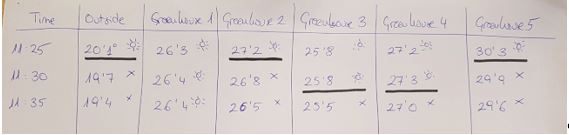 Time Outside Greenhouse 1 Greenhouse 2 Greenhouse 3 Greenhouse 4 Greenhouse 5
11:25 20'1° 26'3 27'2 25'8 27'2 30'3
11:30 19'7 x 26'4 26'8 x 25'8 x 27'3 x 29'9 x
11:35 19'4 x 26'4 26'5 x 25'5 x 27'0 x 29'6 x